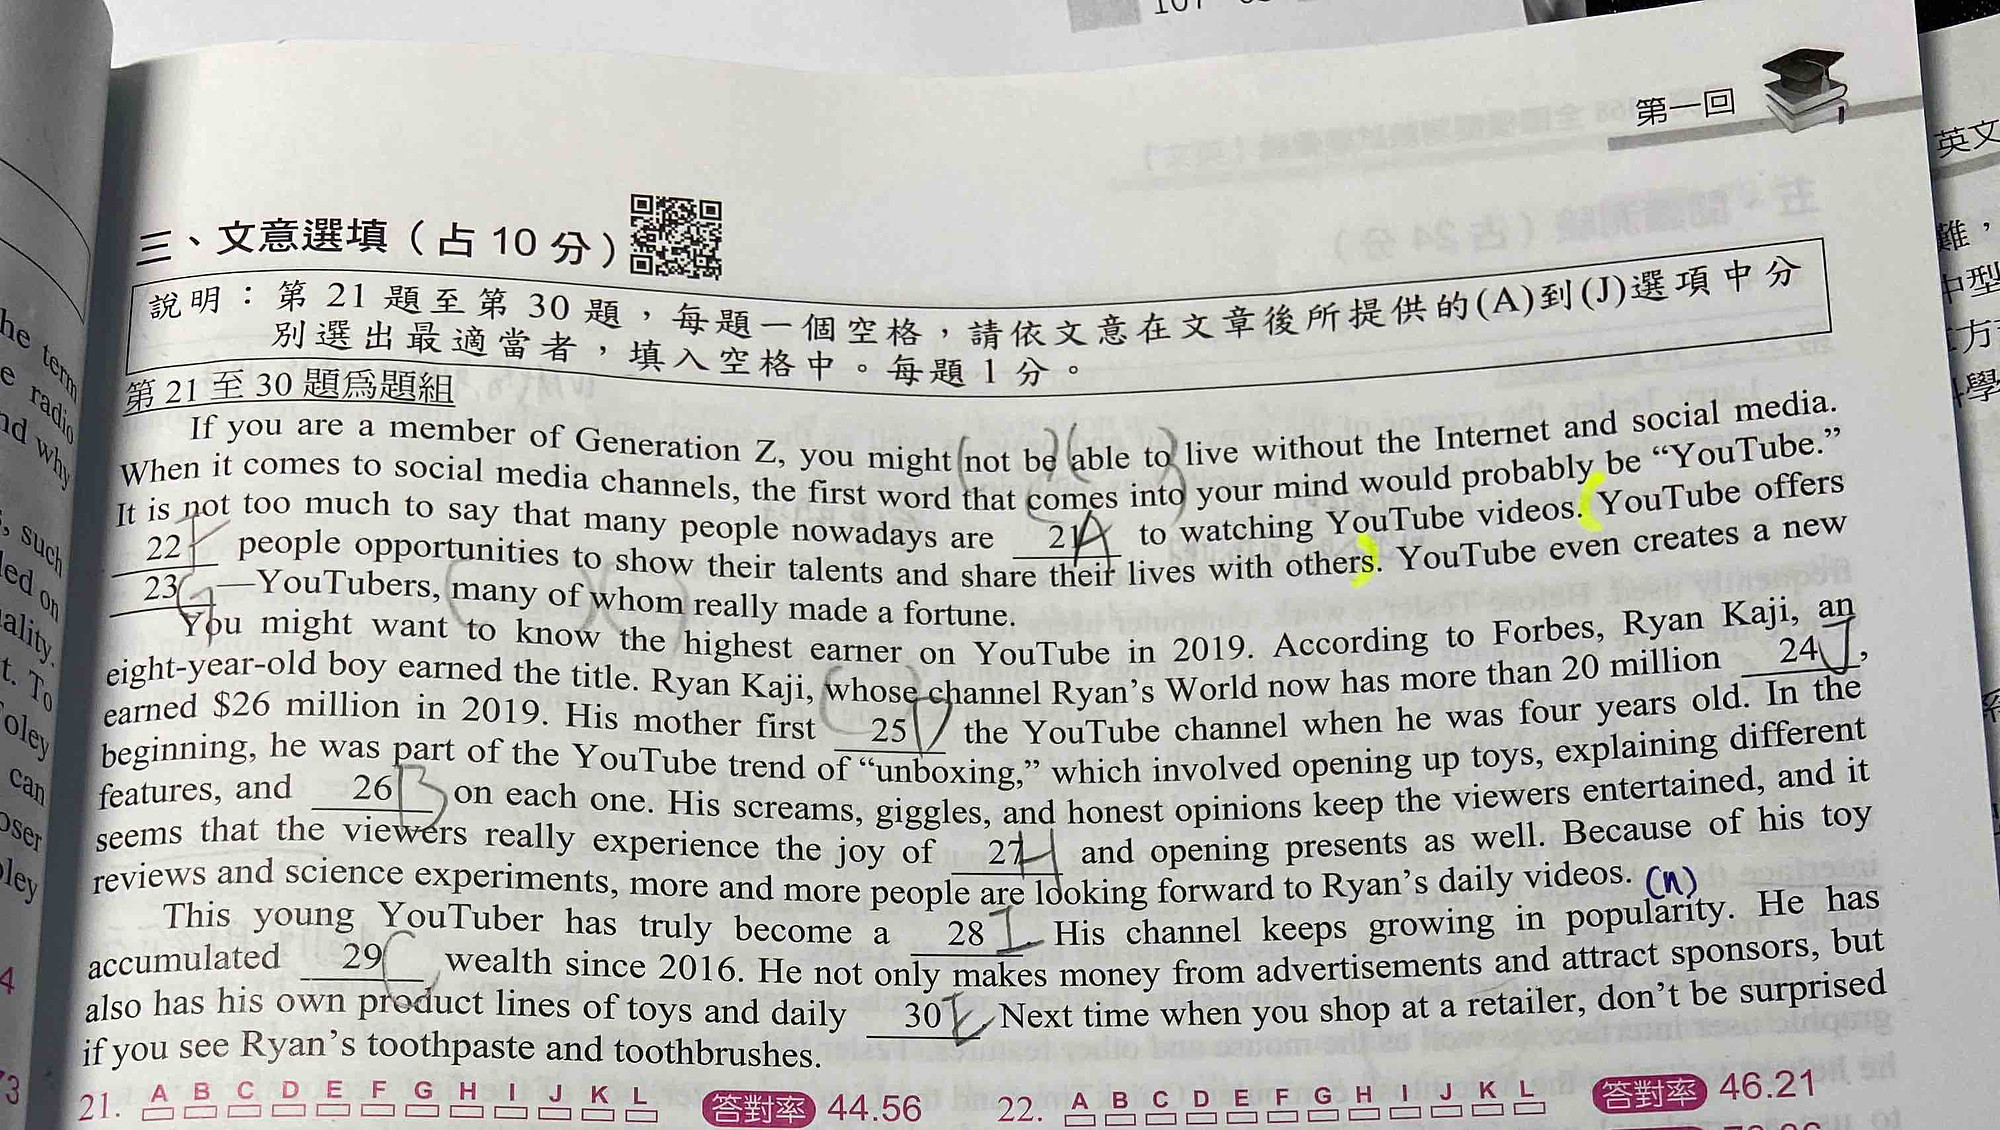 107
第一回
英文
三、文意選填（占 10 分）
說明：第 21 題至第 30 題，每題一個空格，請依文意在文章後所提供的(A)到(J)選項中分
別選出最適當者，填入空格中。每題 1 分。
第 21 至 30 題為題組
If you are a member of Generation Z, you might not be able to live without the Internet and social media.
When it comes to social media channels, the first word that comes into your mind would probably be “YouTube.”
It is not too much to say that many people nowadays are 21 A to watching YouTube videos. YouTube offers
22 F people opportunities to show their talents and share their lives with others. YouTube even creates a new
23 G —YouTubers, many of whom really made a fortune.
You might want to know the highest earner on YouTube in 2019. According to Forbes, Ryan Kaji, an
eight-year-old boy earned the title. Ryan Kaji, whose channel Ryan’s World now has more than 20 million 24 J,
earned $26 million in 2019. His mother first 25 D the YouTube channel when he was four years old. In the
beginning, he was part of the YouTube trend of “unboxing,” which involved opening up toys, explaining different
features, and 26 B on each one. His screams, giggles, and honest opinions keep the viewers entertained, and it
seems that the viewers really experience the joy of 27 H and opening presents as well. Because of his toy
reviews and science experiments, more and more people are looking forward to Ryan’s daily videos.
(n)
This young YouTuber has truly become a 28 I His channel keeps growing in popularity. He has
accumulated 29 C wealth since 2016. He not only makes money from advertisements and attract sponsors, but
also has his own product lines of toys and daily 30 E Next time when you shop at a retailer, don’t be surprised
if you see Ryan’s toothpaste and toothbrushes.
21. A B C D E F G H I J K L 答對率 44.56 22. A B C D E F G H I J K L 答對率 46.21
he term
e radio
nd why
, such
led on
ality.
t. To
oley
can
oser
ley
4
3
難，
中型
方
學